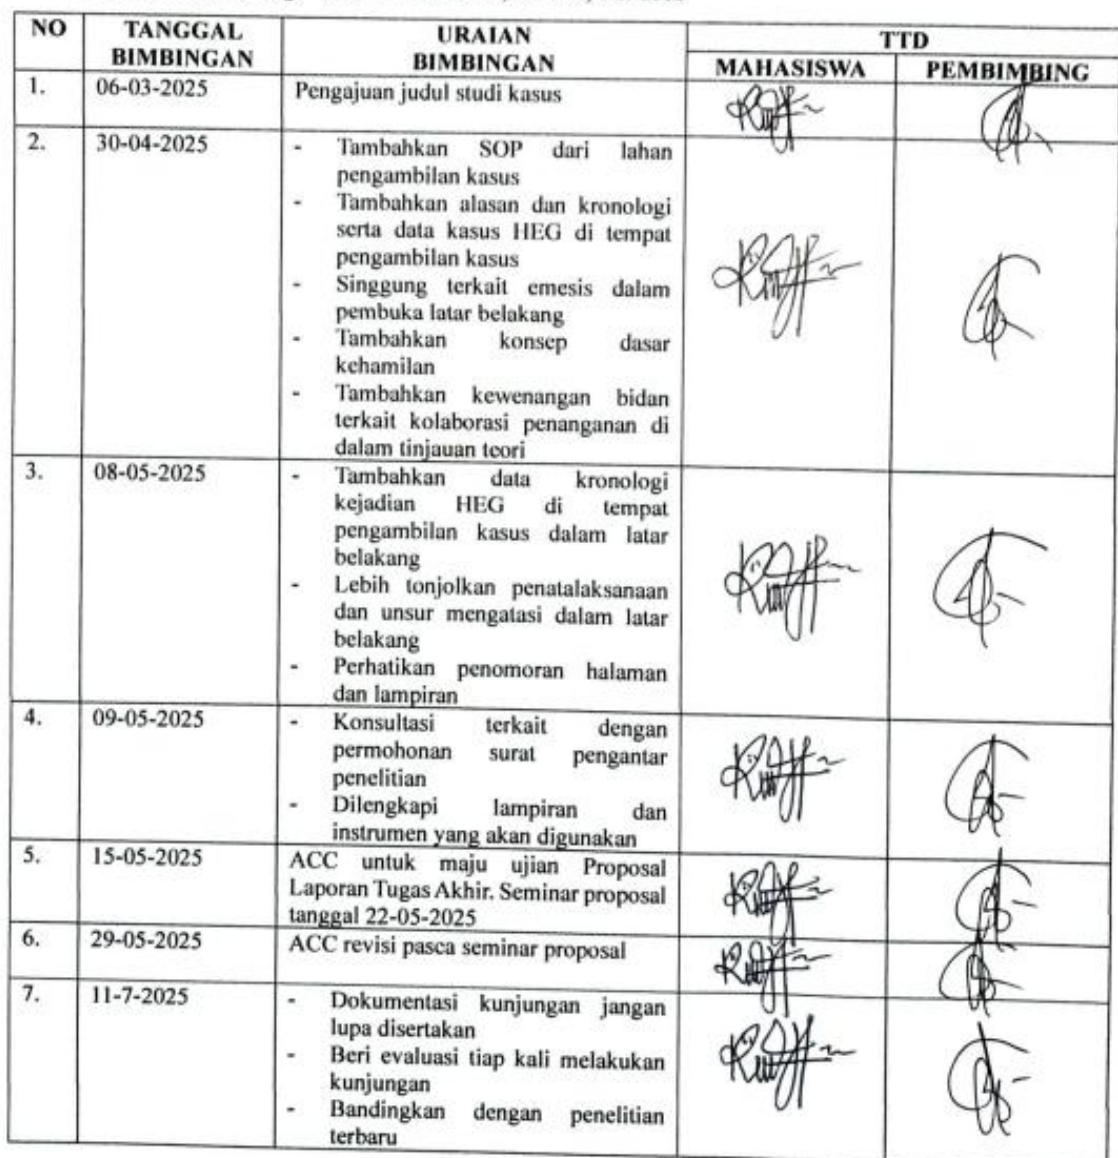 NO TANGGAL BIMBINGAN URAIAN BIMBINGAN TTD
MAHASISWA PEMBIMBING
1. 06-03-2025 Pengajuan judul studi kasus
2. 30-04-2025 - Tambahkan SOP dari lahan
pengambilan kasus
- Tambahkan alasan dan kronologi
serta data kasus HEG di tempat
pengambilan kasus
- Singgung terkait emesis dalam
pembuka latar belakang
- Tambahkan konsep dasar
kehamilan
- Tambahkan kewenangan bidan
terkait kolaborasi penanganan di
dalam tinjauan teori
3. 08-05-2025 - Tambahkan data kronologi
kejadian HEG di tempat
pengambilan kasus dalam latar
belakang
- Lebih tonjolkan penatalaksanaan
dan unsur mengatasi dalam latar
belakang
- Perhatikan penomoran halaman
dan lampiran
4. 09-05-2025 - Konsultasi terkait dengan
permohonan surat pengantar
penelitian
- Dilengkapi lampiran dan
instrumen yang akan digunakan
5. 15-05-2025 ACC untuk maju ujian Proposal
Laporan Tugas Akhir. Seminar proposal
tanggal 22-05-2025
6. 29-05-2025 ACC revisi pasca seminar proposal
7. 11-7-2025 - Dokumentasi kunjungan jangan
lupa disertakan
- Beri evaluasi tiap kali melakukan
kunjungan
- Bandingkan dengan penelitian
terbaru